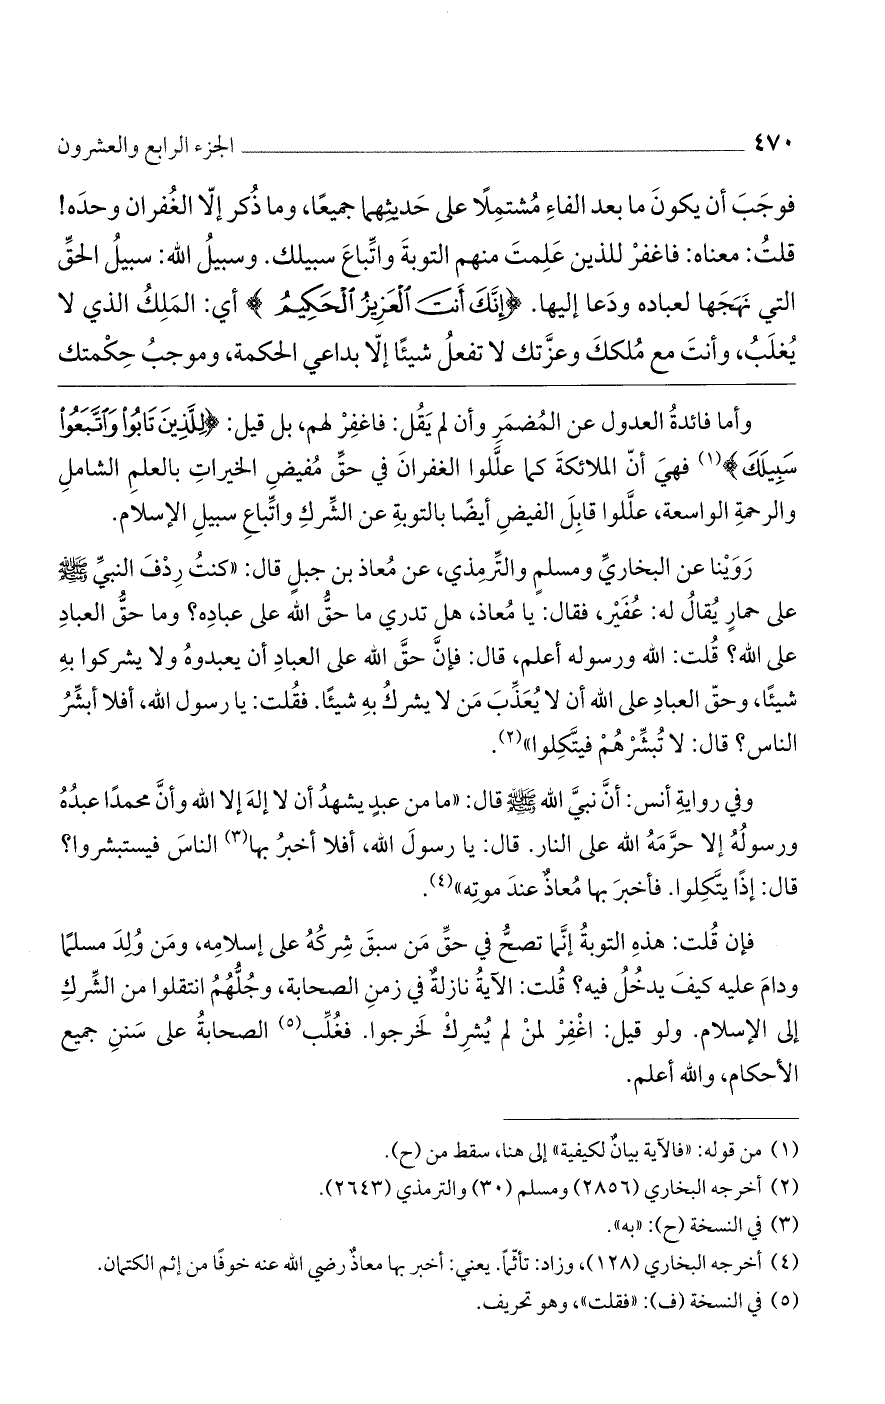 ٤٧٠ ــــــــــــــــــــ الجزء الرابع والعشرون
فوجَبَ أن يكونَ ما بعد الفاءِ مُشتمِلًا على حَديثِهما جميعًا، وما ذُكر إلّا الغُفران وحدَه!
قلتُ: معناه: فاغفرْ للذين عَلِمتَ منهم التوبةَ واتِّباعَ سبيلك. وسبيلُ الله: سبيلُ الحقِّ
التي نَهَجَها لعباده ودَعا إليها. ﴿إِنَّكَ أَنتَ ٱلْعَزِيزُ ٱلْحَكِيمُ﴾ أي: المَلِكُ الذي لا
يُغلَبُ، وأنتَ مع مُلككَ وعزَّتك لا تفعلُ شيئًا إلّا بداعي الحكمة، وموجبُ حِكْمتك
وأما فائدةُ العدول عن المُضمَرِ وأن لم يَقُل: فاغفِرْ لهم، بل قيل: ﴿لِلَّذِينَ تَابُوا۟ وَٱتَّبَعُوا۟
سَبِيلَكَ﴾(١) فهيَ أنّ الملائكةَ كما علَّلوا الغفرانَ في حقِّ مُفيضِ الخيراتِ بالعلمِ الشاملِ
والرحمةِ الواسعة، علَّلوا قابِلَ الفيضِ أيضًا بالتوبةِ عن الشِّركِ واتِّباعِ سبيلِ الإسلام.
رَوَيْنا عن البخاريِّ ومسلمٍ والتِّرمِذي، عن مُعاذ بن جبلٍ قال: «كنتُ رِدْفَ النبيِّ ﷺ
على حمارٍ يُقالُ له: عُفَيْر، فقال: يا مُعاذ، هل تدري ما حقُّ الله على عبادِه؟ وما حقُّ العبادِ
على الله؟ قُلت: الله ورسوله أعلم، قال: فإنَّ حقَّ الله على العبادِ أن يعبدوهُ ولا يشركوا بهِ
شيئًا، وحقّ العبادِ على الله أن لا يُعَذِّبَ مَن لا يشركُ بهِ شيئًا. فقُلت: يا رسول الله، أفلا أبشِّرُ
الناس؟ قال: لا تُبشِّرْهُمْ فيتَّكِلوا»(٢).
وفي روايةِ أنس: أنَّ نبيَّ الله ﷺ قال: «ما من عبدٍ يشهدُ أن لا إلهَ إلا الله وأنَّ محمدًا عبدُهُ
ورسولُهُ إلا حرَّمَهُ الله على النار. قال: يا رسولَ الله، أفلا أخبرُ بها(٣) الناسَ فيستبشروا؟
قال: إذًا يتَّكِلوا. فأخبرَ بها مُعاذٌ عندَ موتِه»(٤).
فإن قُلت: هذهِ التوبةُ إنَّما تصحُّ في حقِّ مَن سبقَ شِركُهُ على إسلامِه، ومَن وُلِدَ مسلمًا
ودامَ عليه كيفَ يدخُلُ فيه؟ قُلت: الآيةُ نازلةٌ في زمنِ الصحابة، وجُلُّهُمُ انتقلوا من الشِّركِ
إلى الإسلام. ولو قيل: اغْفِرْ لمنْ لم يُشرِكْ لَخرجوا. فغُلِّب(٥) الصحابةُ على سَننِ جميع
الأحكام، والله أعلم.
(١) من قوله: «فالآية بيانٌ لكيفية» إلى هنا، سقط من (ح).
(٢) أخرجه البخاري (٢٨٥٦) ومسلم (٣٠) والترمذي (٢٦٤٣).
(٣) في النسخة (ح): «به».
(٤) أخرجه البخاري (١٢٨)، وزاد: تأثّماً. يعني: أخبر بها معاذٌ رضي الله عنه خوفًا من إثم الكتمان.
(٥) في النسخة (ف): «فقلت»، وهو تحريف.